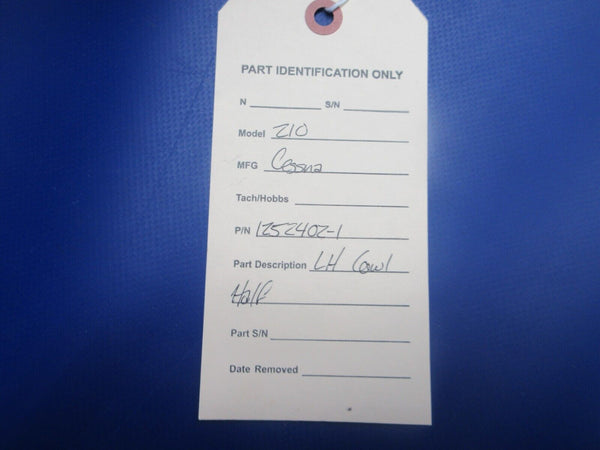 PART IDENTIFICATION ONLY
N ____________ S/N ____________
Model 210
MFG Cessna
Tach/Hobbs ____________
P/N 1252402-1
Part Description LH Cowl
Half
Part S/N ____________
Date Removed ____________